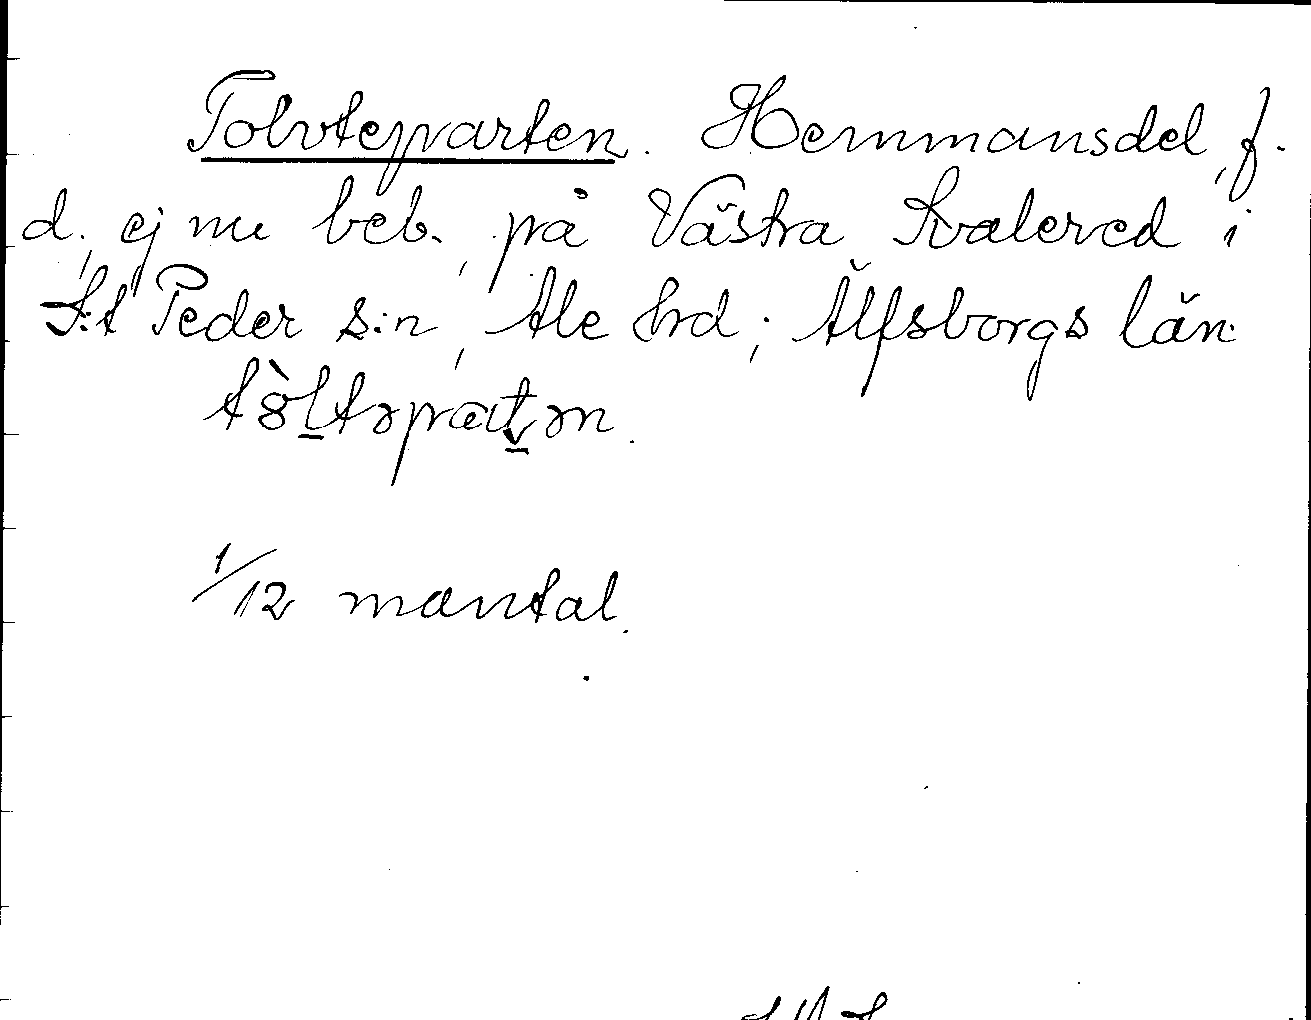 Tolvteparten. Hemmansdel, f.
d., ej nu beb., på Västra Kvalered i
S:t Peder s:n, Ale hrd, Älfsborgs län.
1/12 mantal.